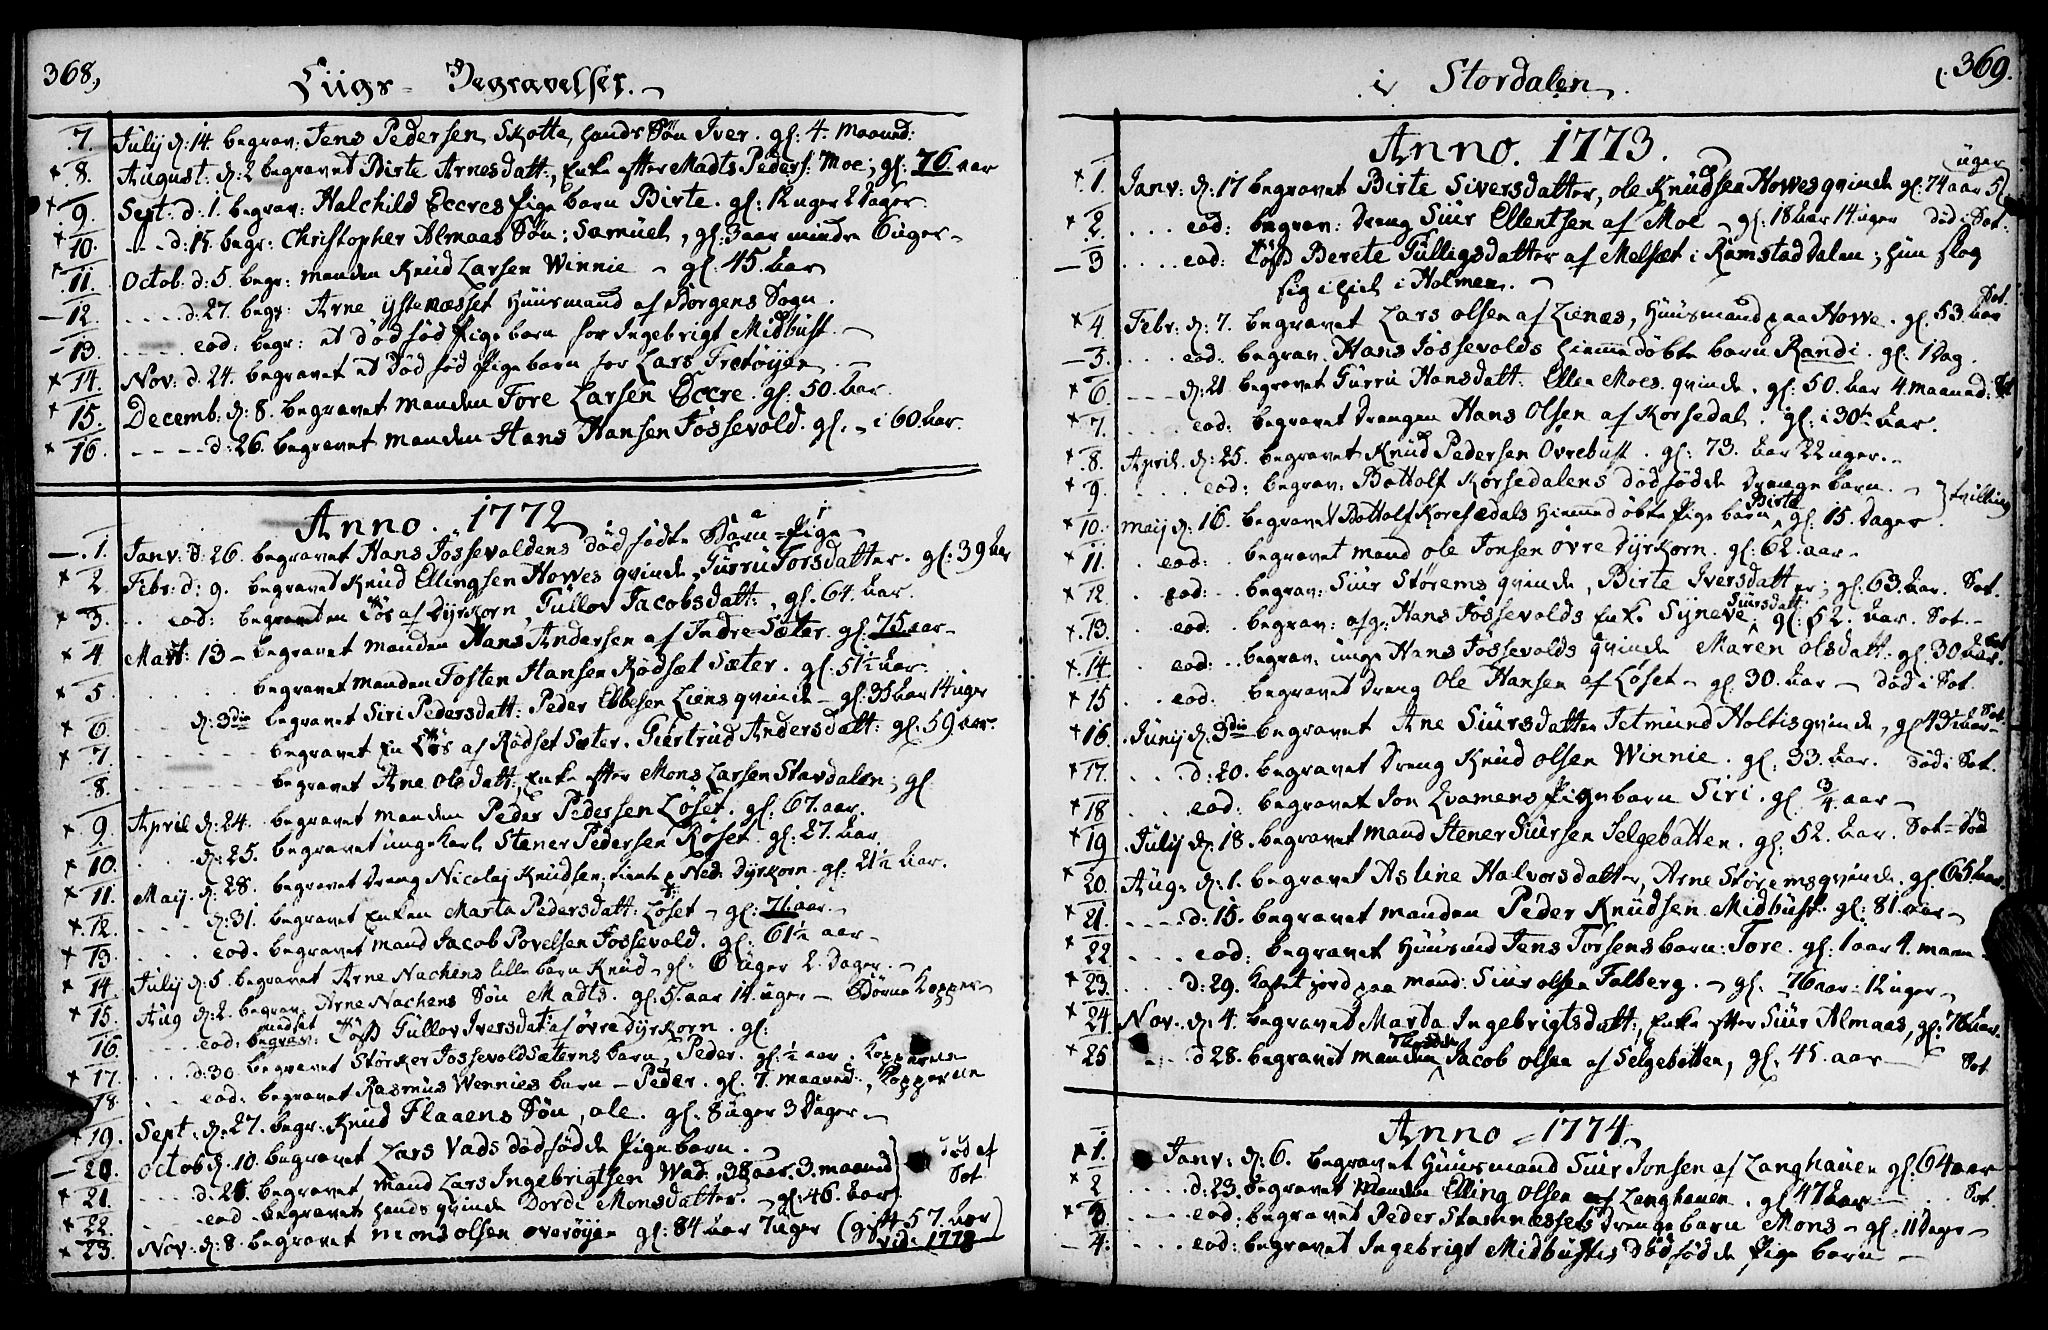 368,
Liigs-Begravelser.
7. Julij d: 14. begrav: Jens Pedersen Skotte, hands Søn Iver. gl: 4. maaned:
× 8. August: d: 2 begravet Birte Arnesdatt:, Enke efter Madts Peders: Moe; gl: 76. aar
× 9. Sept: d: 1. begrav: Halchild Eccres Pige barn Birte. gl: 12 uger 2 Dager.
× 10. -- d: 15. begr: Christopher Almaas Søn; Samuel, gl: 3 aar mindre 6 uger
× 11. Octob: d: 5. begr: manden Knud Larsen Winnie - gl: 45. aar
- 12 ---- d: 27. begr: Arne ystenæsset Huusmand af Borgens Sogn.
- 13. ---- eod: begr: et dødfød Pige barn for Ingebrigt Midbust.
× 14. Nov: d: 24. begravet et Død fød Pige barn for Lars Tretøyen
× 15. Decemb: d: 8. begravet manden Tore Larsen Eccre. gl: 50. aar.
× 16. ---- d: 26. begravet manden Hans Hansen Fossevold. gl. - i 60. aar.
Anno. 1772
- 1. Janv: d: 26. begravet Hans Fossevoldens dødfødte Barn = Pige
× 2 Febr: d: 9. begravet Knud Ellingsen Howes qvinde, Gurru Torsdatter. gl: 39 aar
× 3. .. eod: begravet en Løs af Dyrkorn, Gullov Jacobsdatt:, gl: 64. aar.
× 4 Mart: 13 - begravet manden Hans Andersen af Indre-Sæter. gl: 75. aar-
× 5 begravet manden Tosten Hansen Rødsæt Sæter. gl. 51½ aar.
× 6. d: 3die begravet Siri Pedersdatt: Peder Ebbesen Liens qvinde - gl: 35 aar 14 uger
× 7. begravet En Løs af Rødset Sæter. Giertrud Andersdatt: gl: 59 aar.
8. begravet Ane Olsdatt:, Enke efter Mons Larsen Stavdalen; gl.
× 9. April d: 24. begravet manden Peder Pedersen Løset. gl: 67. aar.
× 10. d: 25. begravet unge Karl Stener Pedersen Røset gl: 27. aar.
× 11. Maij. d: 28. begravet Dreng Nicolaj Knudsen; tiente p Ned: Dyrkorn. gl: 21½ aar.
× 12. --- d: 31. begravet Enken Marta Pedersdatt: Løset - gl: 71. aar.
× 13 eod. begravet mand Jacob Povelsen Fossevold. gl: 61½ aar-
× 14. Julij d: 5. begravet Arne Nachens lille barn Knud - gl: 6 uger 2. Dager.
× 15. Aug d: 2. begrav: Arne Nachens Søn Madts. gl: 5. aar 14. uger - Børne Kopper
16. eod: begrav: Løs Gullov Iversdat: af øvre Dyrkorn. gl:
× 17. d: 30. begravet Størker Fossevold Sæterns barn, Peder. gl: ½ aar. Kopperne
18. eod: begravet Rasmus Wennies barn - Peder. gl. 7. maaned., Kopperne
× 19. Sept. d: 27. begr. Knud Flaaens Søn, ole. gl: 8 uger 3 Dager-
- 20. Octob d. 10. begravet Lars Vads dødfødde Pige barn.
× 21. ... d: 25. begravet mand Lars Ingebrigtsen Wad. 38 aar. 3. maaned
× 22. ... eod begravet hands qvinde Dordi Monsdatter. - gl: 46. aar } død af Sot
× 23. Nov: d: 8. begravet mons olsen overøyen gl: 84 aar 7 uger (gift 57. aar) vid: 1778
369.
i Stordalen.
Anno. 1773.
× 1. Janv: d: 17 begravet Birte Siversdatter, ole Knudsen Howes qvinde gl. 74 aar 5 uger
× 2 .... eod: begrav: dreng Siur Ellentsen af Moe - gl: 18 aar 14 uger død i Sot.
- 3 .... eod: Løs Berete Tulligsdatter af Melset i Romstad Dalen; hun slog
sig i hiel i Holmen.
× 4 Febr. d: 7. begravet Lars olsen af Lienæs, Huusmand paa Howe. gl. 53. aar Sot.
- 5. .... eod: begrav: Hans Fossevolds hiemmedøbte barn Randi. gl: 1 Dag.
× 6 ---- d: 21 begravet Gurru Hansdatt: Ellen Moes. qvinde. gl: 50. aar 4. maaned:
× 7. .... eod: begravet Drengen Hans Olsen af Korsedal. gl: i 30te aar.
× 8. April. d: 25. begravet Knud Pedersen Ovrebust. gl: 73. aar 22 uger.
× 9. eod: begrav: Bottolf Korsedalens dødfødde Drenge barn. - } tvilling
× 10. Maij d: 16. begravet Bottolf Korsedals Hiemmedøbte Pige barn Birte gl: 15. Dager
× 11. eod: begravet mand Ole Jonsen øvre Dyrkorn. gl: 62. aar-
× 12 . eod: begrav: Siur Størems qvinde, Birte Iversdatter; gl: 63. aar. Sot.
× 13. eod: begrav: afg: Hans Fossevolds Enke Syneve Siursdatt. gl: 52. aar. Sot.-
× 14 . eod: begrav: unge Hans Fossevolds qvinde Maren Olsdatt: gl. 30 aar. Sot
× 15 .. eod: begravet dreng Ole Hansen af Løset - gl: 30. aar - død i Sot.
× 16. Junij d: 3die begravet Ane Siursdatter Jetmund Holtis qvinde, gl 43½ aar- Sot.
× 17. ... d: 20. begravet dreng Knud Olsen Winnie. gl: 33. aar. død i Sot.
× 18 ... eod: begravet Jon Kvamens Pigebarn Siri. gl ¾ aar -
× 19 Julij d: 18. begravet mand Stener Siursen Selgebotten. gl: 52. aar. Sot=Død
× 20. Aug: d: 1. begravet Asline Halvorsdatter, Arne Størems qvinde. gl. 65. aar.
× 21. ---- d: 15. begravet manden Peder Knudsen Midbust. gl: 81. aar-
× 22. .... eod: begravet Huusmd Jens Torsens barn: Tore. gl: 1 aar 4. maan-
× 23. .... d: 29. Kastet jord paa mand: Siur olsen Talberg. - gl. 76 aar 12 uger-
× 24. Nov. d: 4. begravet Marta Ingebrigtsdatt:, Enke efter Siur Almaas, gl. 76 aar.
× 25 ... d 28. begravet manden Jacob olsen af Selgebotten, gl. 45. aar - Sot
Anno - 1774
× 1. Janv: d: 6. begravet Huusmand Siur Jonsen af Langhauen gl: 64 aar
× 2 .... d: 23. begravet Manden Elling Olsen af Langhauen. gl 47 aar - Sot.
× 3 .... eod: begravet Peder Stamnessets Drenge barn Mons - gl. 11 Dage-
- 4. .... eod: begravet Ingebrigt Midbustis dødfødde Pige barn-